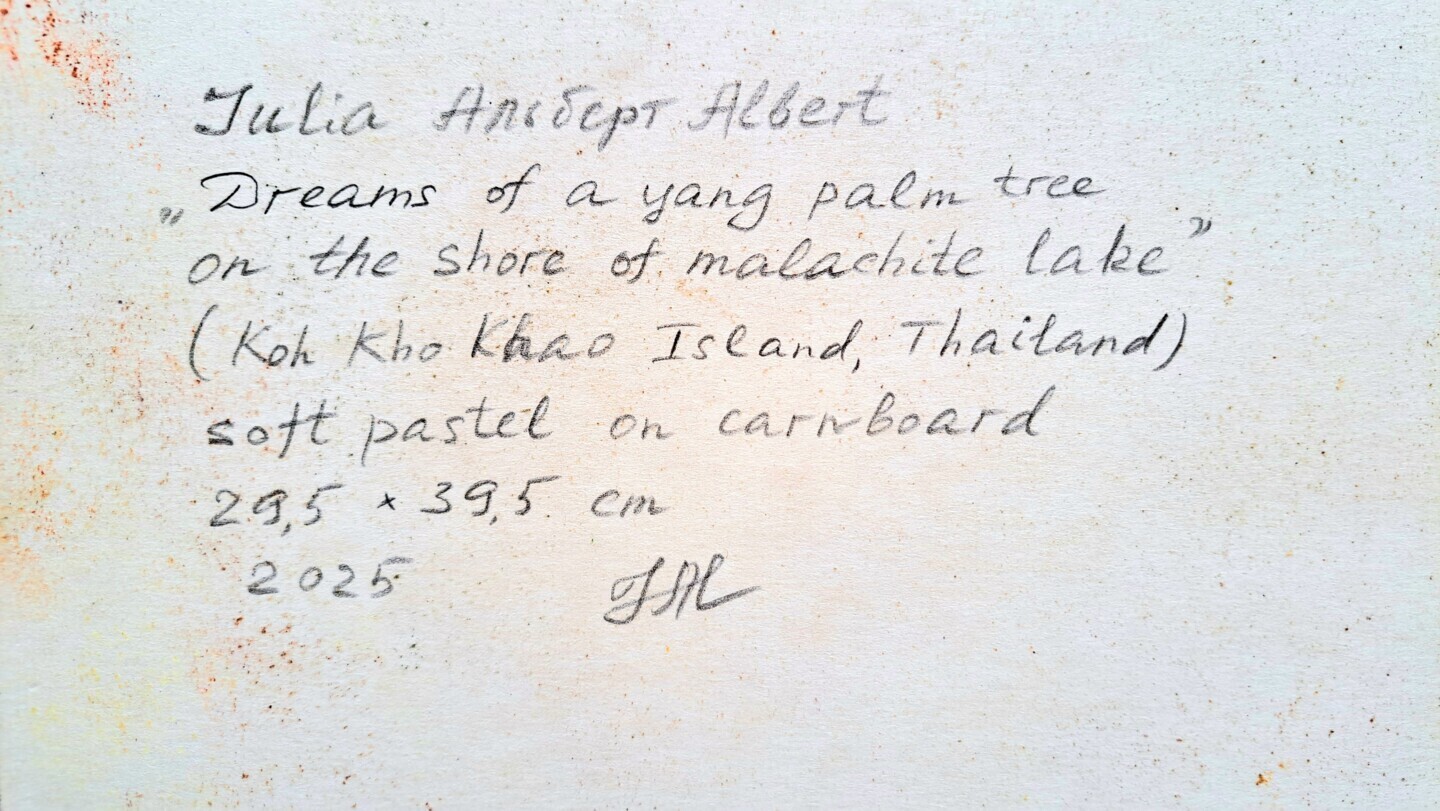 Julia Альберт Albert
„Dreams of a yang palm tree
on the shore of malachite lake”
(Koh Kho Khao Island, Thailand)
soft pastel on carnboard
29,5 × 39,5 cm
2025